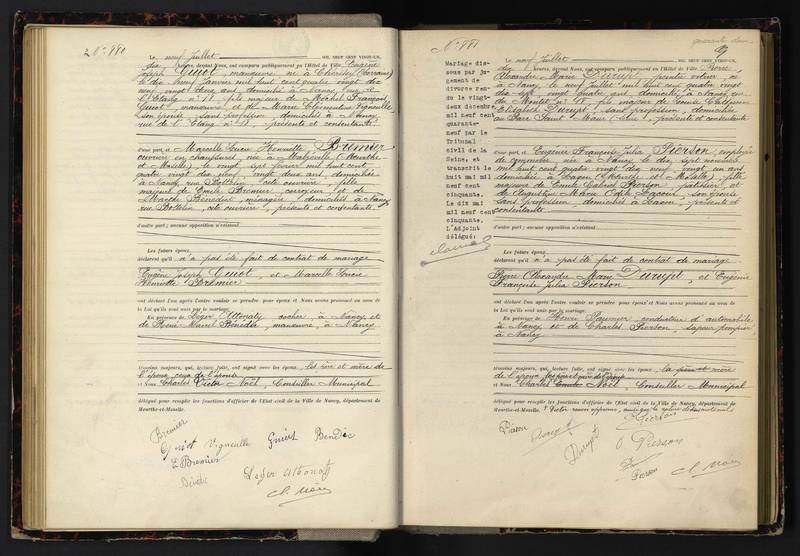 N° 880
Le neuf Juillet MIL NEUF CENT VINGT-UN,
dix heures, devant Nous, ont comparu publiquement en l'Hôtel de Ville Eugène
Joseph Guiot, manœuvre, né à (Lorraine)
le dix neuf Janvier mil huit cent quatre vingt dix
neuf, vingt deux ans, domicilié à Nancy, rue de
l'Etang n° 18, fils majeur de Michel François
Guiot, manœuvre, et de Marie Clémentine Vigneulle
son épouse, sans profession, domiciliés à Nancy
rue de l'Etang n° 18, présents et consentants.
d'une part, et Marcelle Lucie Henriette Bremier
ouvrière en chaussures, née à Malzéville (Meurthe
et Moselle) le vingt sept février mil huit cent
quatre vingt dix neuf, vingt deux ans, domiciliée
à Nancy rue cité ouvrière, fille
majeure de Emile Bremier, corroyeur, et de
Marthe Bénédic, ménagère, domiciliés à Nancy
rue cité ouvrière, présents et consentants.
d'autre part; aucune opposition n'existant
Les futurs époux
déclarent qu'il n'a pas été fait de contrat de mariage
Eugène Joseph Guiot, et Marcelle Lucie
Henriette Bremier
ont déclaré l'un après l'autre vouloir se prendre pour époux et Nous avons prononcé au nom de
la Loi qu'ils sont unis par le mariage.
En présence de Léger cocher, à Nancy et
de René Marcel Bénédic, manœuvre, à Nancy
témoins majeurs, qui, lecture faite, ont signé avec les époux, les père et mère de
l'époux, ceux de l'épouse
et Nous Charles Victor Noël, Conseiller Municipal
délégué pour remplir les fonctions d'officier de l'Etat civil de la Ville de Nancy, département de
Meurthe-et-Moselle.
Bremier
Guiot Vigneulle Guiot Bénédic
E Bremier
Bénédic Léger
Ch. Noël
N° 881
Mariage dis-
sous par ju-
gement de
divorce ren-
du le vingt-
deux décembre
mil neuf cent
quarante-
neuf par le
Tribunal
civil de la
Seine, et
transcrit le
huit mai mil
neuf cent
cinquante.
Le dix mai
mil neuf cent
cinquante.
L'Adjoint
délégué:
Le neuf Juillet MIL NEUF CENT VINGT-UN,
dix heures, devant Nous, ont comparu publiquement en l'Hôtel de Ville Pierre
Alexandre Marie Durupt, peintre vitrier, né
à Nancy, le neuf Juillet mil huit cent quatre vingt
dix sept, vingt quatre ans, domicilié à Nancy, rue
du Montet n° 18, fils majeur de
Elisabeth Durupt, sans profession, domiciliée
au Parc Saint Maur (Seine), présente et consentante
d'une part, et Eugénie Françoise Julia Pierson, employée
de commerce, née à Nancy le dix sept novembre
mil huit cent quatre vingt dix neuf, vingt un ans
domiciliée à (Meurthe et Moselle), fille
majeure de Emile Gabriel Pierson, pâtissier, et
de Marie son épouse
sans profession, domiciliés à présents et
consentants
d'autre part; aucune opposition n'existant
Les futurs époux
déclarent qu'il n'a pas été fait de contrat de mariage
Pierre Alexandre Marie Durupt, et Eugénie
Françoise Julia Pierson
ont déclaré l'un après l'autre vouloir se prendre pour époux et Nous avons prononcé au nom de
la Loi qu'ils sont unis par le mariage.
En présence de Henri conducteur d'automobile
à Nancy et de Charles Pierson, sapeur pompier
à Nancy
témoins majeurs, qui, lecture faite, ont signé avec les époux, la mère
de l'époux,
et Nous Charles Noël, Conseiller Municipal
délégué pour remplir les fonctions d'officier de l'Etat civil de la Ville de Nancy, département de
Meurthe-et-Moselle.
Pierson
Durupt
Durupt
Pierson
Pierson
Ch. Noël